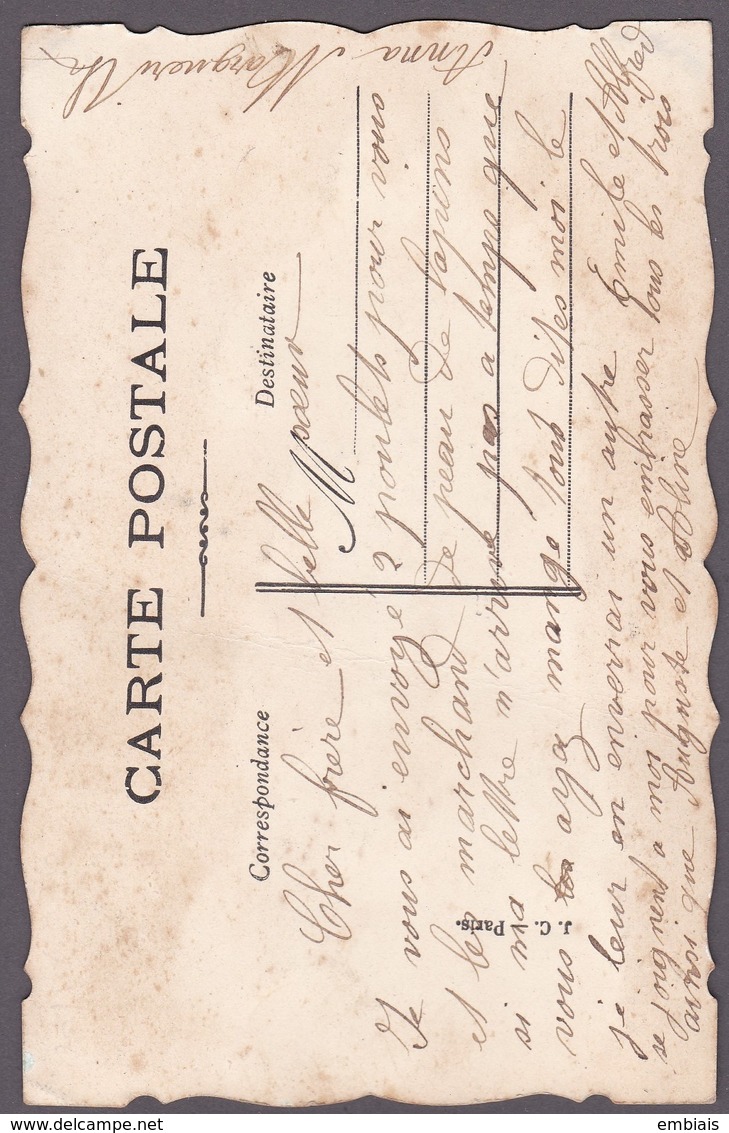 CARTE POSTALE
Correspondance
Destinataire
Cher frère et belle Sœur
Je vous ai envoyé 2 poulets pour vous
et les marchand de peau de lapins
si ma lettre n'arrive pas a temps que
vous aya mangé tout dites moi le
je leur en enverrai un autre Emile et Alfred
se joignent a moi pour vous embrasser tous les trois
ainsi que Auguste et Aline
Anna Marguerith
J. C. Paris.
embiais